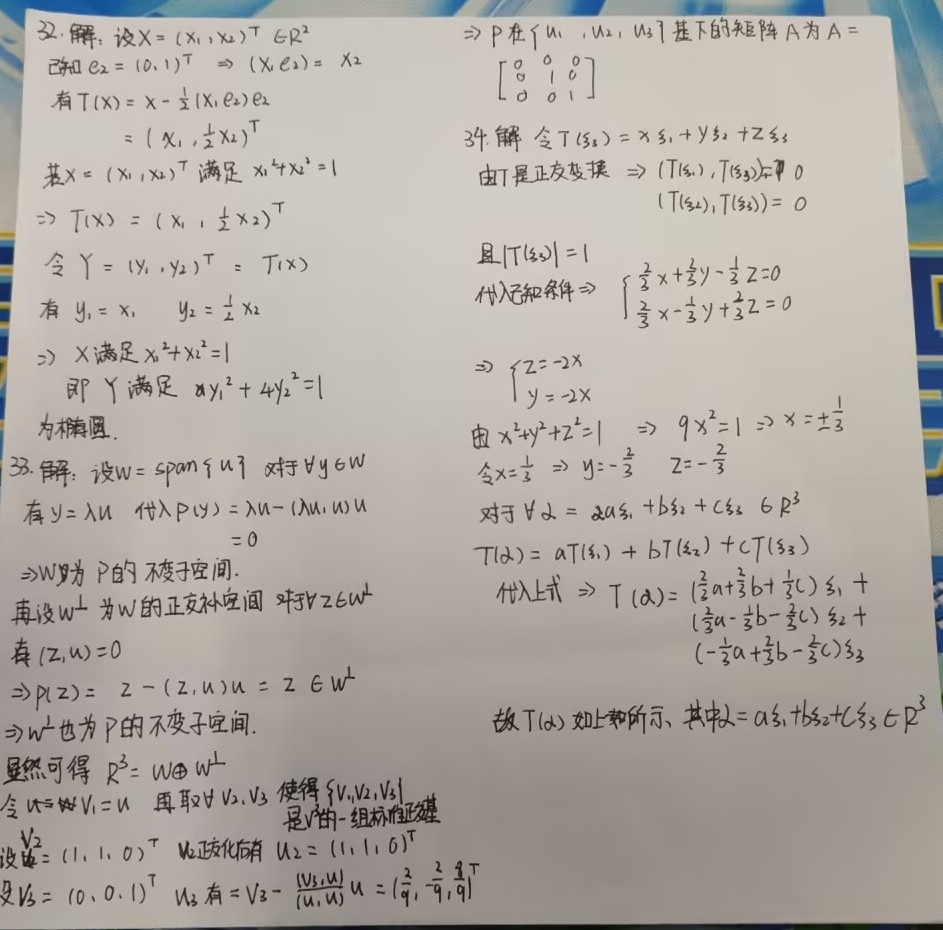 32.解：设X=(x₁,x₂)ᵀ∈R²
已知e₂=(0,1)ᵀ ⇒ (X,e₂)= x₂
有T(X)= X-½(X,e₂)e₂
=(x₁,½x₂)ᵀ
若X=(x₁,x₂)ᵀ 满足 x₁²+x₂²=1
⇒ T(X) = (x₁, ½x₂)ᵀ
令 Y=(y₁,y₂)ᵀ = T(X)
有 y₁=x₁ y₂=½x₂
⇒ X满足x₁²+x₂²=1
即 Y满足 y₁²+4y₂²=1
为椭圆.
33.解：设W=span{u} 对于∀y∈W
有y=λu 代入P(y)=λu-(λu,u)u
=0
⇒W为P的不变子空间.
再设W^⊥为W的正交补空间 对于∀z∈W^⊥
有(z,u)=0
⇒P(z)= z-(z,u)u = z ∈W^⊥
⇒W^⊥也为P的不变子空间.
显然可得 R³=W⊕W^⊥
令 V₁=u 再取∀ V₂,V₃ 使得{V₁,V₂,V₃}
是V³的一组标准正交基
设V₂=(1,1,0)ᵀ V₂正交化后有 u₂=(1,1,0)ᵀ
设V₃=(0,0,1)ᵀ u₃有=V₃-(V₃,u)/(u,u) u =(2/9,-2/9,8/9)ᵀ
⇒ P在{u₁,u₂,u₃}基下的矩阵A为A=
[0 0 0
0 1 0
0 0 1]
34.解 令T(ξ₃)=xξ₁+yξ₂+zξ₃
由T是正交变换 ⇒ (T(ξ₁),T(ξ₃))=0
(T(ξ₂),T(ξ₃))=0
且|T(ξ₃)|=1
代入已知条件⇒ { 2/3x+2/3y-1/3z=0
2/3x-1/3y+2/3z=0
⇒ { z=-2x
y=-2x
由x²+y²+z²=1 ⇒ 9x²=1 ⇒ x=±1/3
令x=1/3 ⇒ y=-2/3 z=-2/3
对于∀α=aξ₁+bξ₂+cξ₃ ∈R³
T(α)=aT(ξ₁)+bT(ξ₂)+cT(ξ₃)
代入上式 ⇒ T(α)=(2/3a+2/3b+1/3c)ξ₁+
(2/3a-1/3b-2/3c)ξ₂+
(-1/3a+2/3b-2/3c)ξ₃
故T(α)如上所示、其中α=aξ₁+bξ₂+cξ₃∈R³